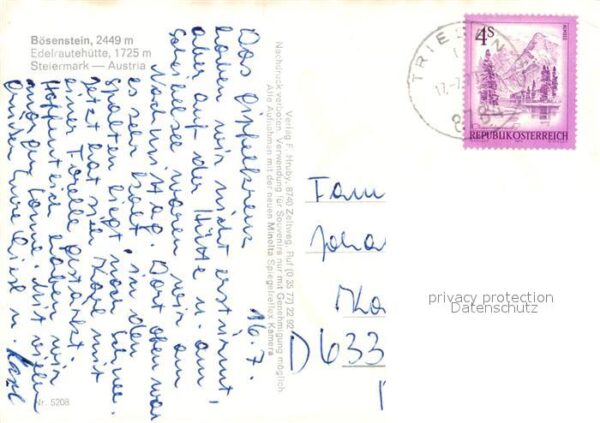 Bösenstein, 2449 m
Edelrautehütte, 1725 m
Steiermark — Austria
16.7.
Das Gipfelkreuz
haben wir nicht erstürmt,
aber auf der Hütte u. am
waren wir am
Nachmittag. Dort oben war
es sehr kalt, in den
spalten liegt noch Schnee.
Jetzt hat sich Karl mit
einer Forelle gestärkt.
Hoffentlich haben wir
Sonne. Mit vielen
Grüßen Eure
Verlag F. Hruby, 8740 Zeltweg, Ruf (0 35 77) 22 92
Nachdruck verboten. Verwendung für Souvenirs nur mit Genehmigung möglich
Alle Aufnahmen mit der neuen Minolta Spiegelreflex Kamera
Nr. 5208
TRIEBEN
17.-7.
4S
REPUBLIK ÖSTERREICH
Fam
Joha
D 633
privacy protection
Datenschutz